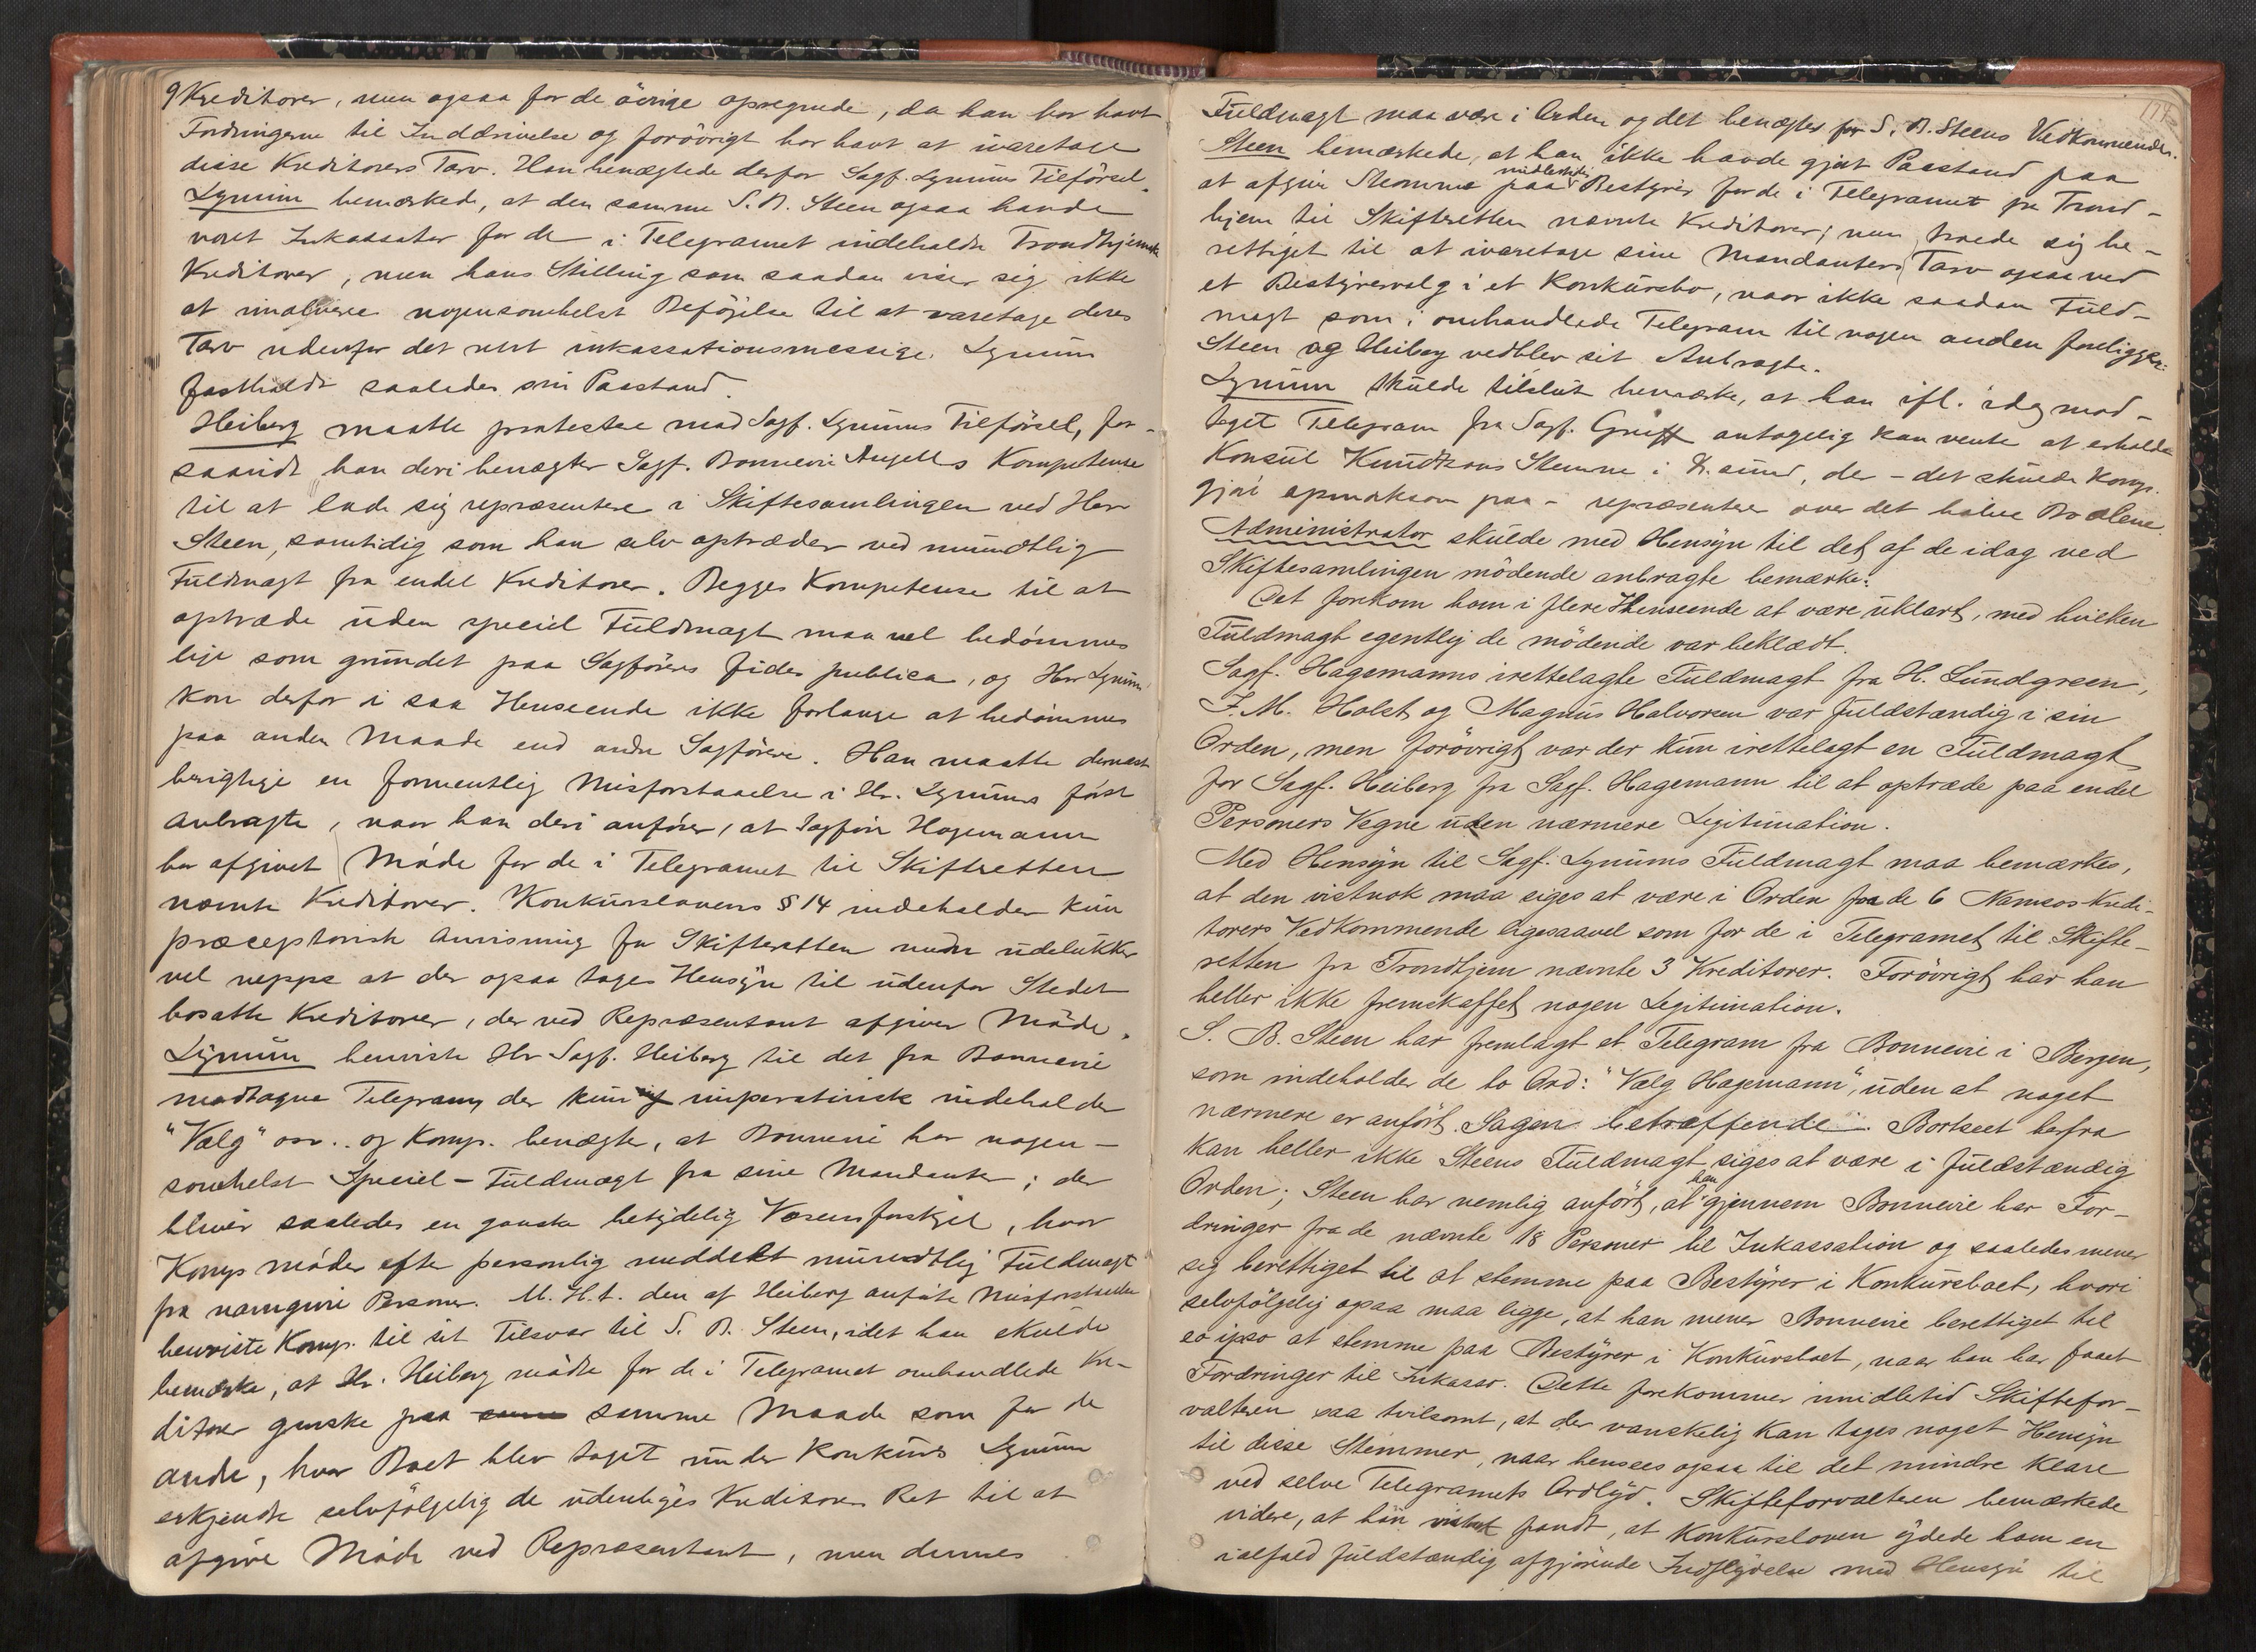 9 Kreditorer, men ogsaa for de övrige opregnede, da han har havt
Fordringerne til Inddrivelse og forövrigt har havt at ivaretage
disse Kreditorers Tarv. Han benægtede derfor Sagf. Lynums Tilförsel.
Lynum bemærkede, at den samme S. B. Steen ogsaa havde
været Inkassator for de i Telegramet indeholdte Trondhjemske
Kreditorer, men hans Stilling som saadan viser sig ikke
at involvere nogensomhelst Beföjelse til at varetage deres
Tarv udenfor det rent inkassationsmessige. Lynum
fastholdt saaledes sin Paastand.
Heiberg maatte protestere mod Sagf. Lynums Tilförsel, for-
saavidt han deri benægter Sagf. Bonnevie Angells Kompetense
til at lade sig repræsentere i Skiftesamlingen ved Herr
Steen, samtidig som han selv optræder ved mundtlig
Fuldmagt fra endel Kreditorer. Begges Kompetense til at
optræde uden speciel Fuldmagt maa vel bedömmes
lige som grundet paa Sagföreres fides publica, og Herr Lynum
kan derfor i saa Henseende ikke forlange at bedömmes
paa anden Maade end andre Sagförere. Han maatte dernæst
berigtige en formentlig Misforstaaelse i Hr. Lynums först
Anbragte, naar han deri anförer, at Sagförer Hagemann
har afgivet Möde for de i Telegramet til Skifteretten
nævnte Kreditorer. Konkurslovens § 14 indeholder kun
præceptorisk Anvisning for Skifteretten men udelukker
vel neppe at der ogsaa tages Hensyn til udenfor Stedet
bosatte Kreditorer, der ved Repræsentant afgiver Möde.
Lynum henviste Hr Sagf. Heiberg til det fra Bonnevie
modtagne Telegram, der kun imperativisk indeholder
"Vælg" osv.. og Komp. benægter, at Bonnevie har nogen-
somhelst Speciel-Fuldmagt fra sine Mandanter; der
bliver saaledes en ganske betydelig Væsensforskjel, hvor
Komp. möder efter personlig meddelt mundtlig Fuldmagt
fra navngivne Personer. M. H. t. den af Heiberg anförte Misforstaaelse
henviste Komp. til sit Tilsvar til S. B. Steen, idet han skulde
bemærke, at Hr. Heiberg mödte for de i Telegramet omhandlede Kre-
ditorer ganske paa samme Maade som for de
andre, hvor Boet blev taget under Konkurs. Lynum
erkjendte selvfölgelig de udenbyes Kreditorers Ret til at
afgive Möde ved Repræsentant, men dennes
174
Fuldmagt maa være i Orden og det benægtes for S. B. Steens Vedkommende.
Steen bemærkede, at han ikke havde gjort Paastand paa
at afgive Stemme paa midlertidig Bestyrer for de i Telegramet fra Trond-
hjem til Skifteretten nævnte Kreditorer; men troede sig be-
rettiget til at ivaretage sine Mandanters Tarv ogsaa ved
et Bestyrervalg i et Konkursbo, naar ikke saadan Fuld-
magt som i omhandlede Telegram til nogen anden foreligger.
Steen og Heiberg vedblev sit Anbragte.
Lynum skulde tilslut bemærke, at han ifl. idag mod-
taget Telegram fra Sagf. Greiff antagelig kan vente at erholde
Konsul Knudtzons Stemme i K.sund, der - det skulde Komp.
gjöre opmerksom paa - repræsenterer over det halve Bo alene.
Administrator skulde med Hensyn til det af de idag ved
Skiftesamlingen mödende anbragte bemærke:
Det forekom ham i flere Henseende at være uklart, med hvilken
Fuldmagt egentlig de mödende var beklædt.
Sagf. Hagemanns irettelagte Fuldmagt fra H. Lundgreen,
F. M. Holst og Magnus Halvorsen var fuldstændig i sin
Orden, men forövrigt var der kun irettelagt en Fuldmagt
for Sagf. Heiberg fra Sagf. Hagemann til at optræde paa endel
Personers Vegne uden nærmere Legitimation.
Med Hensyn til Sagf. Lynums Fuldmagt maa bemærkes,
at den vistnok maa siges at være i Orden for de 6 Namsos-Kredi-
torers Vedkommende ligesaavel som for de i Telegramet til Skifte-
retten fra Trondhjem nævnte 3 Kreditorer. Forövrigt har han
heller ikke fremskaffet nogen Legitimation.
S. B. Steen har fremlagt et Telegram fra Bonnevie i Bergen,
som indeholder de to Ord: "Vælg Hagemann", uden at noget
nærmere er anfört Sagen betræffende. Bortseet herfra
kan heller ikke Steens Fuldmagt siges at være i fuldstændig
Orden; Steen har nemlig anfört, at han gjennem Bonnevie har For-
dringer fra de nævnte 18 Personer til Inkassation og saaledes mener
sig berettiget til at stemme paa Bestyrer i Konkursboet, hvori
selvfölgelig ogsaa maa ligge, at han mener Bonnevie berettiget til
eo ipso at stemme paa Bestyrer i Konkursboet, naar han har faaet
Fordringer til Inkasso. Dette forekommer imidlertid Skiftefor-
valteren saa tvilsomt, at der vanskelig kan tages noget Hensyn
til disse Stemmer, naar hensees ogsaa til det mindre klare
ved selve Telegramets Ordlyd. Skifteforvalteren bemærkede
videre, at han vistnok fandt, at Konkursloven ydede ham en
ialfald fuldstændig afgjörende Indflydelse med Hensyn til